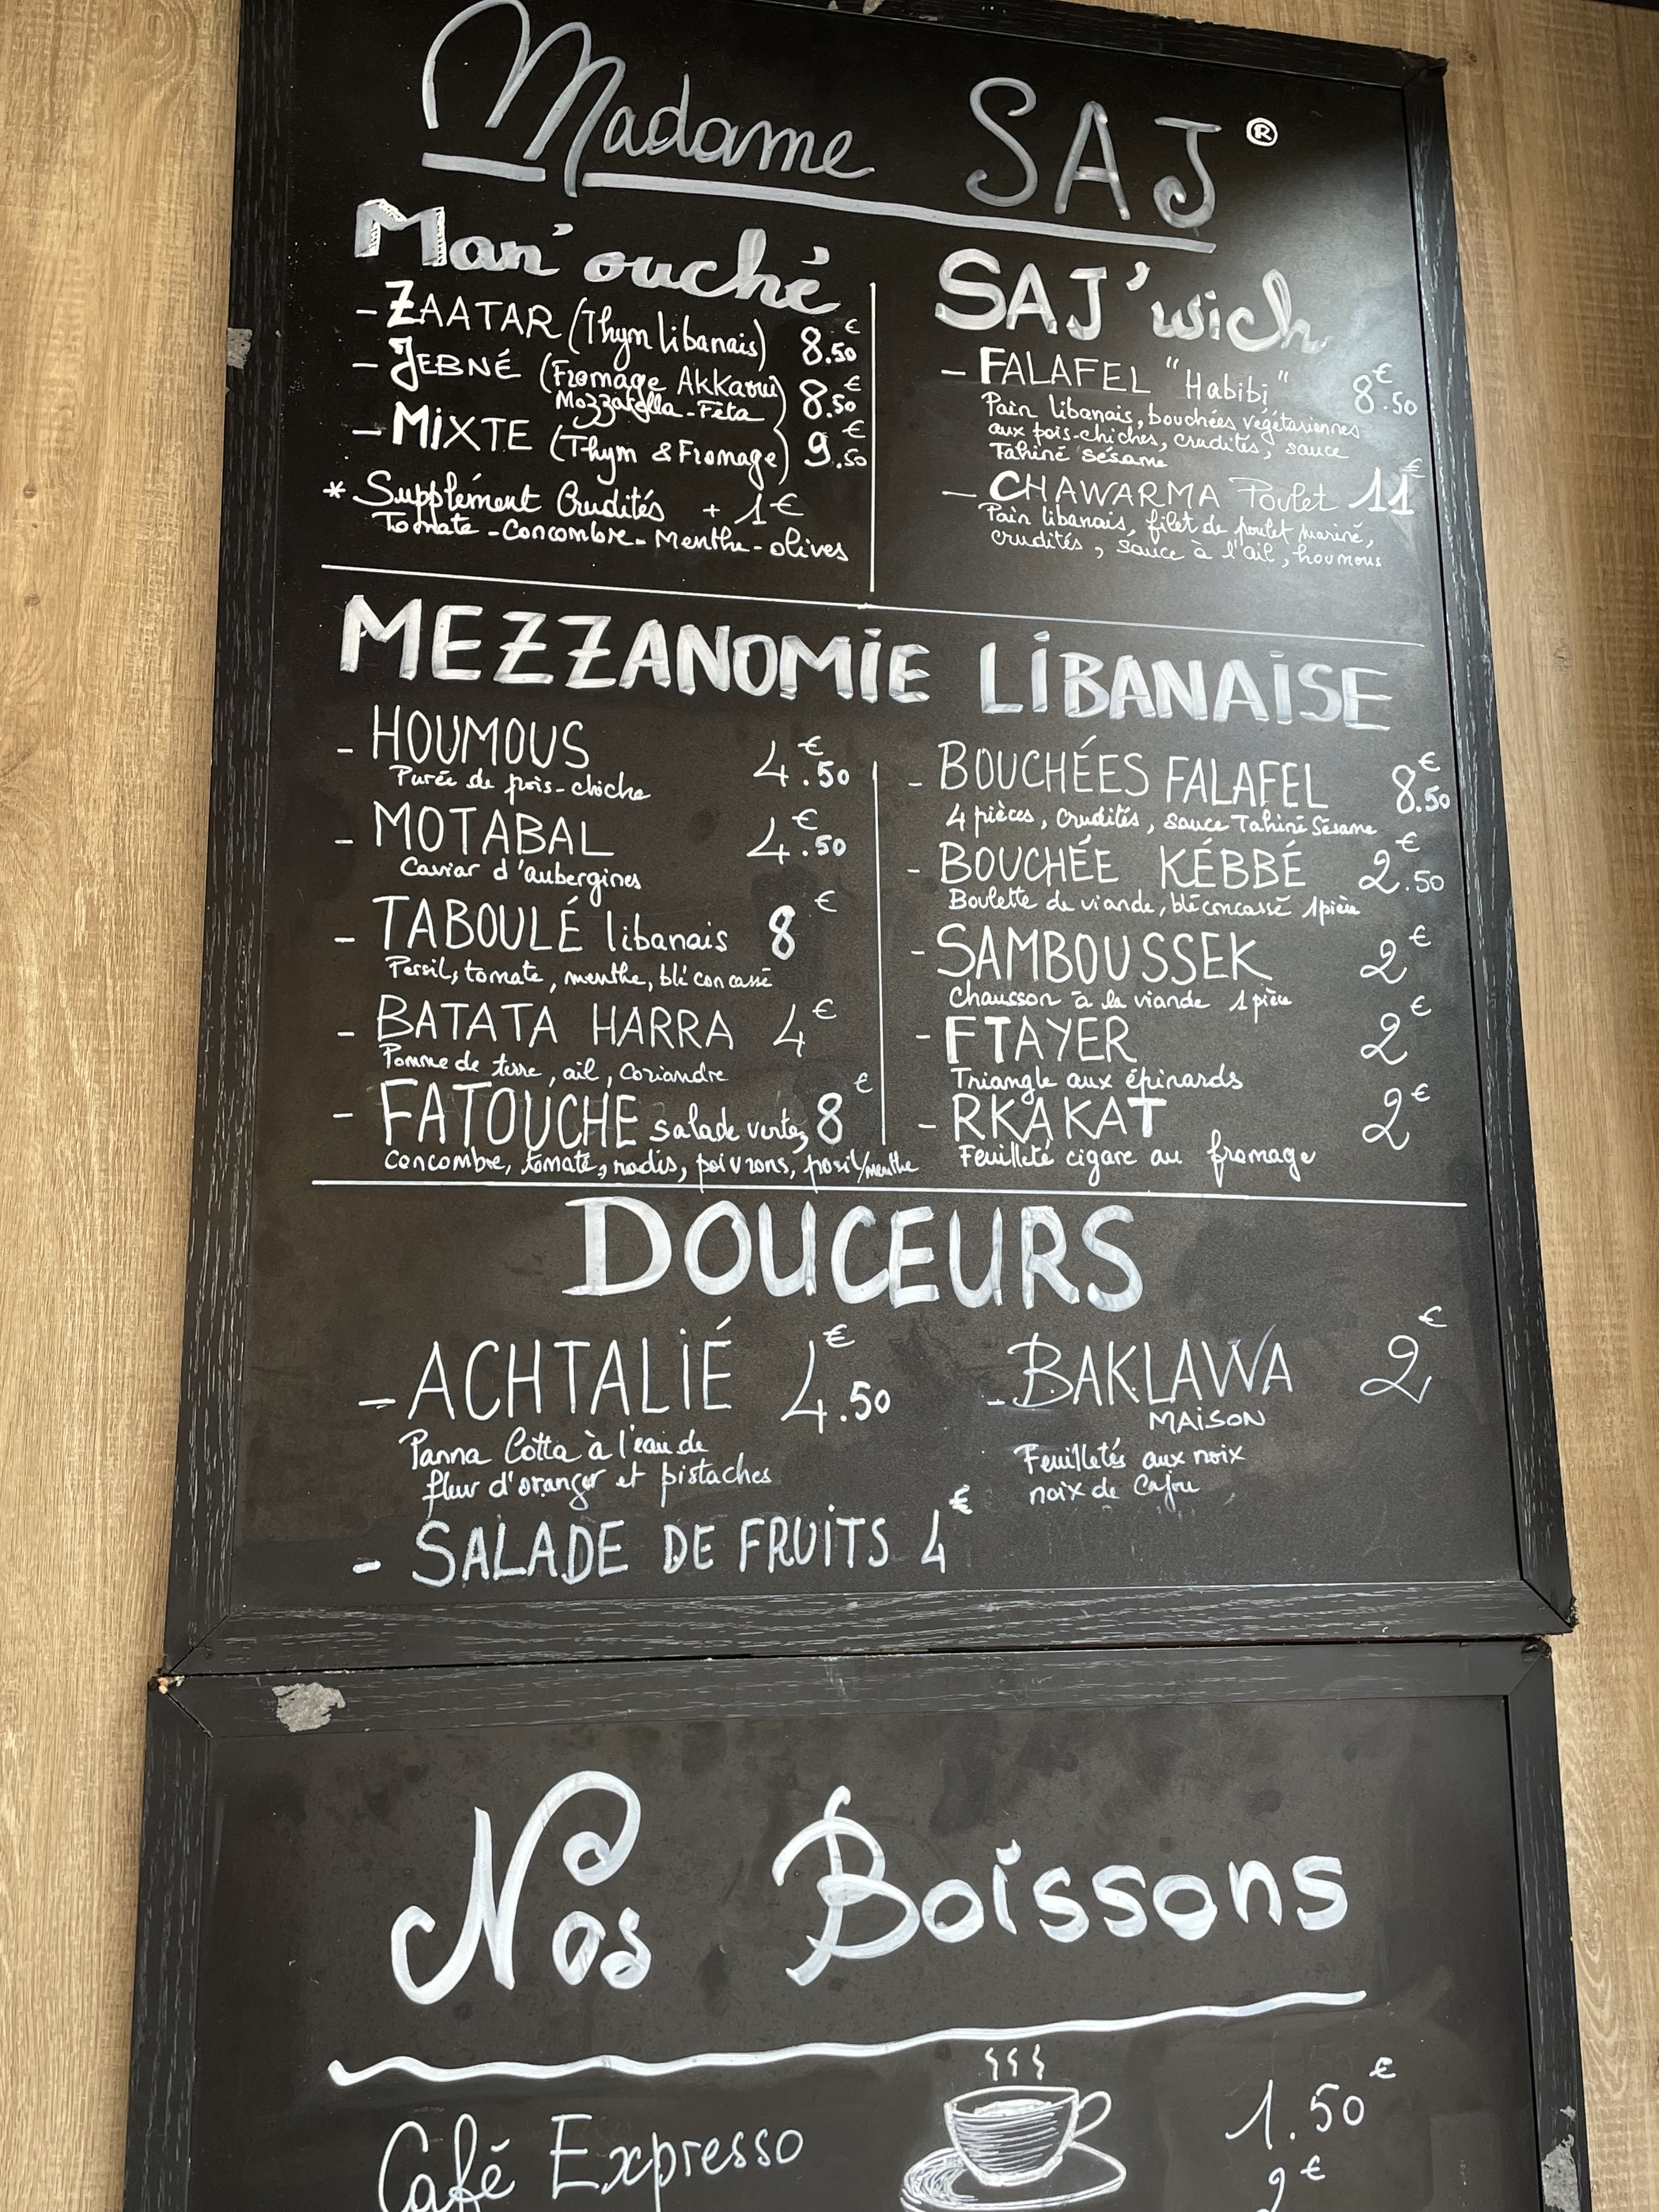 Madame SAJ®
Man'ouché
- ZAATAR (Thym libanais) 8.50€
- JEBNÉ (Fromage Akkaoui 8.50€
Mozzarella - Féta)
- MIXTE (Thym & Fromage) 9.50€
* Supplément Crudités + 1€
Tomate - Concombre - Menthe - olives
SAJ'wich
- FALAFEL "Habibi" 8€.50
Pain libanais, bouchées végétariennes
aux pois-chiches, crudités, sauce
Tahiné sésame
- CHAWARMA Poulet 11€
Pain libanais, filet de poulet mariné,
crudités, sauce à l'ail, houmous
MEZZANOMIE LIBANAISE
- HOUMOUS 4€.50
Purée de pois-chiche
- MOTABAL 4€.50
Caviar d'aubergines
- TABOULÉ libanais 8€
Persil, tomate, menthe, blé concassé
- BATATA HARRA 4€
Pomme de terre, ail, Coriandre
- FATOUCHE salade verte, 8€
concombre, tomate, radis, poivrons, persil/menthe
- BOUCHÉES FALAFEL 8€.50
4 pièces, crudités, sauce Tahiné Sésame
- BOUCHÉE KÉBBÉ 2€.50
Boulette de viande, blé concassé 1 pièce
- SAMBOUSSEK 2€
Chausson à la viande 1 pièce
- FTAYER 2€
Triangle aux épinards
- RKAKAT 2€
Feuilleté cigare au fromage
DOUCEURS
- ACHTALIÉ 4€.50
Panna Cotta à l'eau de
fleur d'oranger et pistaches
- SALADE DE FRUITS 4€
- BAKLAWA 2€
MAISON
Feuilletés aux noix
noix de Cajou
Nos Boissons
Café Expresso 1.50€
2€